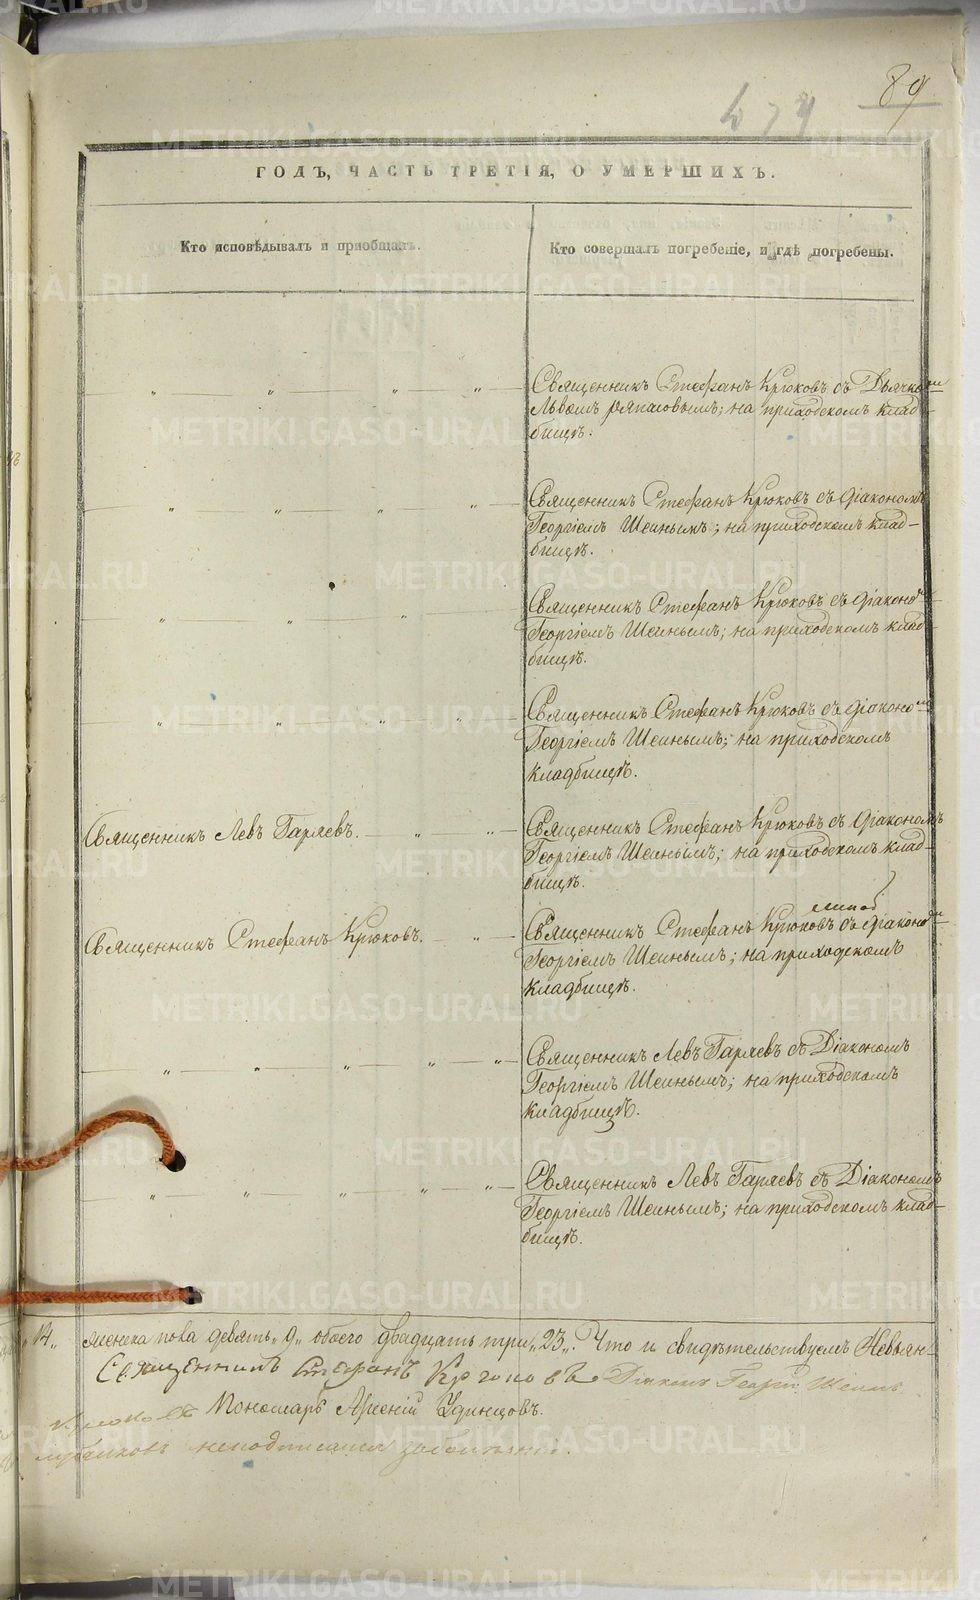 89
ГОДЪ, ЧАСТЬ ТРЕТІЯ, О УМЕРШИХЪ.
Кто исповѣдывалъ и приобщалъ.
Кто совершалъ погребеніе, и гдѣ погребены.
Священникъ Стефанъ Крюковъ съ Дьячкомъ
Львомъ; на приходскомъ клад-
бищѣ.
Священникъ Стефанъ Крюковъ съ діакономъ
Георгіемъ Шеинымъ; на приходскомъ клад-
бищѣ.
Священникъ Стефанъ Крюковъ съ діакономъ
Георгіемъ Шеинымъ; на приходскомъ клад-
бищѣ.
Священникъ Стефанъ Крюковъ съ діакономъ
Георгіемъ Шеинымъ; на приходскомъ
кладбищѣ.
Священникъ Левъ Гаряевъ.
Священникъ Стефанъ Крюковъ съ діакономъ
Георгіемъ Шеинымъ; на приходскомъ клад-
бищѣ.
Священникъ Стефанъ Крюковъ.
Священникъ Стефанъ Крюковъ съ діакономъ
Георгіемъ Шеинымъ; на приходскомъ
кладбищѣ.
Священникъ Левъ Гаряевъ съ Діакономъ
Георгіемъ Шеинымъ; на приходскомъ
кладбищѣ.
Священникъ Левъ Гаряевъ съ Діакономъ
Георгіемъ Шеинымъ; на приходскомъ клад-
бищѣ.
„14„ женска пола девять „9„ обоего двадцать три „23„. Что и свидѣтельствуемъ Невьян-
Священникъ Стефанъ Крюковъ. Діаконъ Георгій Шеинъ
Пономарь Арсеній Удинцовъ.
неподписался
METRIKI.GASO-URAL.RU